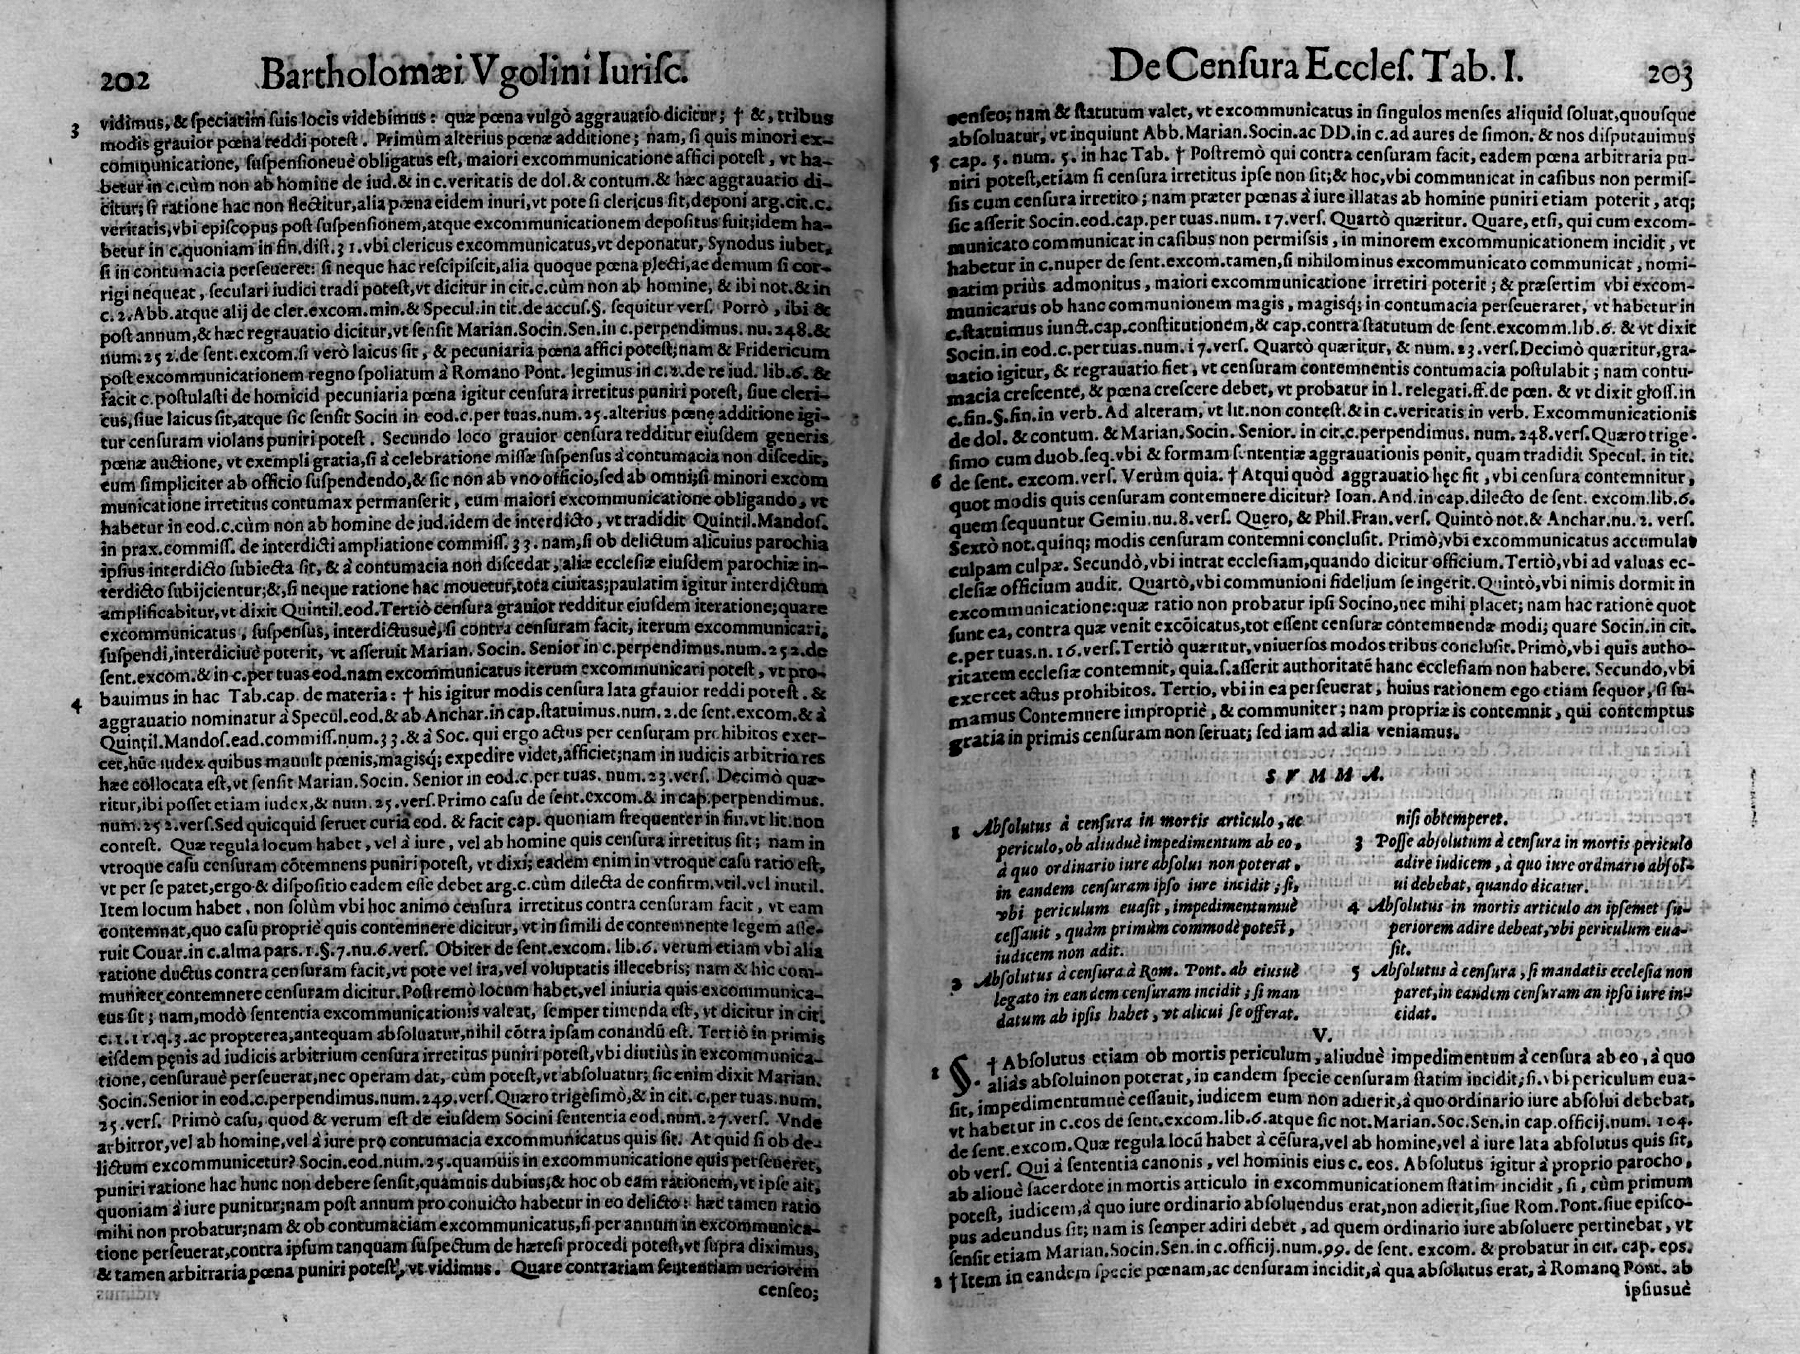 202 Bartholomæi Vgolini Iurisc.
vidimus, & speciatim suis locis videbimus: quæ pœna vulgò aggrauatio dicitur; † &, tribus
3 modis grauior pœna reddi potest. Primùm alterius pœnæ additione; nam, si quis minori ex-
communicatione, suspensioneuè obligatus est, maiori excommunicatione affici potest, vt ha-
betur in c. cùm non ab homine de iud. & in c. veritatis de dol. & contum. & hæc aggrauatio di-
citur; si ratione hac non flectitur, alia pœna eidem inuri, vt pote si clericus sit, deponi arg. cit. c.
veritatis, vbi episcopus post suspensionem, atque excommunicationem depositus fuit; idem ha-
betur in c. quoniam in fin. dist. 31. vbi clericus excommunicatus, vt deponatur, Synodus iubet,
si in contumacia perseueret: si neque hac rescipiscit, alia quoque pœna plecti, ac demum si cor-
rigi nequeat, seculari iudici tradi potest, vt dicitur in cit. c. cùm non ab homine, & ibi not. & in
c. 2. Abb. atque alij de cler. excom. min. & Specul. in tit. de accus. §. sequitur vers. Porrò, ibi &
post annum, & hæc regrauatio dicitur, vt sensit Marian. Socin. Sen. in c. perpendimus. nu. 248. &
num. 252. de sent. excom. si verò laicus sit, & pecuniaria pœna affici potest; nam & Fridericum
post excommunicationem regno spoliatum à Romano Pont. legimus in c. 2. de re iud. lib. 6. &
facit c. postulasti de homicid pecuniaria pœna igitur censura irretitus puniri potest, siue cleri-
cus, siue laicus sit, atque sic sensit Socin in eod. c. per tuas. num. 25. alterius pœnę additione igi-
tur censuram violans puniri potest. Secundo loco grauior censura redditur eiusdem generis
pœnæ auctione, vt exempli gratia, si à celebratione missæ suspensus à contumacia non discedit,
eum simpliciter ab officio suspendendo, & sic non ab vno officio, sed ab omni; si minori excom
municatione irretitus contumax permanserit, eum maiori excommunicatione obligando, vt
habetur in eod. c. cùm non ab homine de iud. idem de interdicto, vt tradidit Quintil. Mandos.
in prax. commiss. de interdicti ampliatione commiss. 33. nam, si ob delictum alicuius parochia
ipsius interdicto subiecta sit, & à contumacia non discedat, aliæ ecclesiæ eiusdem parochiæ in-
terdicto subijcientur; &, si neque ratione hac mouetur, tota ciuitas; paulatim igitur interdictum
amplificabitur, vt dixit Quintil. eod. Tertiò censura grauior redditur eiusdem iteratione; quare
excommunicatus, suspensus, interdictusuè, si contra censuram facit, iterum excommunicari,
suspendi, interdiciuè poterit, vt asseruit Marian. Socin. Senior in c. perpendimus. num. 252. de
sent. excom. & in c. per tuas eod. nam excommunicatus iterum excommunicari potest, vt pro-
4 bauimus in hac Tab. cap. de materia: † his igitur modis censura lata grauior reddi potest. &
aggrauatio nominatur à Specul. eod. & ab Anchar. in cap. statuimus. num. 2. de sent. excom. & à
Quintil. Mandos. ead. commiss. num. 33. & à Soc. qui ergo actus per censuram prohibitos exer-
cet, hũc iudex quibus mauult pœnis, magisq; expedire videt, afficiet; nam in iudicis arbitrio res
hæc collocata est, vt sensit Marian. Socin. Senior in eod. c. per tuas. num. 23. vers. Decimò quæ-
ritur, ibi posset etiam iudex, & num. 25. vers. Primo casu de sent. excom. & in cap. perpendimus.
num. 252. vers. Sed quicquid seruet curia eod. & facit cap. quoniam frequenter in fin. vt lit. non
contest. Quæ regula locum habet, vel à iure, vel ab homine quis censura irretitus sit; nam in
vtroque casu censuram cõtemnens puniri potest, vt dixi; eadem enim in vtroque casu ratio est,
vt per se patet, ergo & dispositio eadem esse debet arg. c. cùm dilecta de confirm. vtil. vel inutil.
Item locum habet, non solùm vbi hoc animo censura irretitus contra censuram facit, vt eam
contemnat, quo casu propriè quis contemnere dicitur, vt in simili de contemnente legem asse-
ruit Couar. in c. alma pars. 1. §. 7. nu. 6. vers. Obiter de sent. excom. lib. 6. verum etiam vbi alia
ratione ductus contra censuram facit, vt pote vel ira, vel voluptatis illecebris; nam & hic com-
muniter contemnere censuram dicitur. Postremò locum habet, vel iniuria quis excommunica-
tus sit; nam, modò sententia excommunicationis valeat, semper timenda est, vt dicitur in cit.
c. 1. 11. q. 3. ac propterea, antequam absoluatur, nihil cõtra ipsam conandũ est. Tertiò in primis
eisdem pęnis ad iudicis arbitrium censura irretitus puniri potest, vbi diutiùs in excommunica-
tione, censurauè perseuerat, nec operam dat, cùm potest, vt absoluatur; sic enim dixit Marian.
Socin. Senior in eod. c. perpendimus. num. 249. vers. Quæro trigesimò, & in cit. c. per tuas. num.
25. vers. Primò casu, quod & verum est de eiusdem Socini sententia eod. num. 27. vers. Vnde
arbitror, vel ab homine, vel à iure pro contumacia excommunicatus quis sit. At quid si ob de-
lictum excommunicetur? Socin. eod. num. 25. quamuis in excommunicatione quis perseueret,
puniri ratione hac hunc non debere sensit, quamuis dubius; & hoc ob eam rationem, vt ipse ait,
quoniam à iure punitur; nam post annum pro conuicto habetur in eo delicto: hæc tamen ratio
mihi non probatur; nam & ob contumaciam excommunicatus, si per annum in excommunica-
tione perseuerat, contra ipsum tanquam suspectum de hæresi procedi potest, vt supra diximus,
& tamen arbitraria pœna puniri potest, vt vidimus. Quare contrariam sententiam ueriorem
censeo;
De Censura Eccles. Tab. I. 203
censeo; nam & statutum valet, vt excommunicatus in singulos menses aliquid soluat, quousque
absoluatur, vt inquiunt Abb. Marian. Socin. ac DD. in c. ad aures de simon. & nos disputauimus
5 cap. 5. num. 5. in hac Tab. † Postremò qui contra censuram facit, eadem pœna arbitraria pu-
niri potest, etiam si censura irretitus ipse non sit; & hoc, vbi communicat in casibus non permis-
sis cum censura irretito; nam præter pœnas à iure illatas ab homine puniri etiam poterit, atq;
sic asserit Socin. eod. cap. per tuas. num. 17. vers. Quartò quæritur. Quare, etsi, qui cum excom-
municato communicat in casibus non permissis, in minorem excommunicationem incidit, vt
habetur in c. nuper de sent. excom. tamen, si nihilominus excommunicato communicat, nomi-
natim priùs admonitus, maiori excommunicatione irretiri poterit; & præsertim vbi excom-
municatus ob hanc communionem magis, magisq; in contumacia perseueraret, vt habetur in
c. statuimus iunct. cap. constitutionem, & cap. contra statutum de sent. excomm. lib. 6. & vt dixit
Socin. in eod. c. per tuas. num. 17. vers. Quartò quæritur, & num. 23. vers. Decimò quæritur, gra-
uatio igitur, & regrauatio fiet, vt censuram contemnentis contumacia postulabit; nam contu-
macia crescente, & pœna crescere debet, vt probatur in l. relegati. ff. de pœn. & vt dixit gloss. in
c. fin. §. fin. in verb. Ad alteram, vt lit. non contest. & in c. veritatis in verb. Excommunicationis
de dol. & contum. & Marian. Socin. Senior. in cit. c. perpendimus. num. 248. vers. Quæro trige-
simo cum duob. seq. vbi & formam sententiæ aggrauationis ponit, quam tradidit Specul. in tit.
6 de sent. excom. vers. Verùm quia. † Atqui quòd aggrauatio hęc fit, vbi censura contemnitur,
quot modis quis censuram contemnere dicitur? Ioan. And. in cap. dilecto de sent. excom. lib. 6.
quem sequuntur Gemin. nu. 8. vers. Quęro, & Phil. Fran. vers. Quintò not. & Anchar. nu. 2. vers.
Sextò not. quinq; modis censuram contemni conclusit. Primò, vbi excommunicatus accumulat
culpam culpæ. Secundò, vbi intrat ecclesiam, quando dicitur officium. Tertiò, vbi ad valuas ec-
clesiæ officium audit. Quartò, vbi communioni fidelium se ingerit. Quintò, vbi nimis dormit in
excommunicatione: quæ ratio non probatur ipsi Socino, nec mihi placet; nam hac ratione quot
sunt ea, contra quæ venit excõicatus, tot essent censuræ contemnendæ modi; quare Socin. in cit.
c. per tuas. n. 16. vers. Tertiò quæritur, vniuersos modos tribus conclusit. Primò, vbi quis autho-
ritatem ecclesiæ contemnit, quia. s. asserit authoritatẽ hanc ecclesiam non habere. Secundo, vbi
exercet actus prohibitos. Tertio, vbi in ea perseuerat, huius rationem ego etiam sequor, si su-
mamus Contemnere impropriè, & communiter; nam propriæ is contemnit, qui contemptus
gratia in primis censuram non seruat; sed iam ad alia veniamus.
SVMMA.
1 Absolutus à censura in mortis articulo, ac
periculo, ob aliuduè impedimentum ab eo,
à quo ordinario iure absolui non poterat,
in eandem censuram ipso iure incidit; si,
vbi periculum euasit, impedimentumuè
cessauit, quàm primùm commodè potest,
iudicem non adit.
2 Absolutus à censura à Rom. Pont. ab eiusuè
legato in eandem censuram incidit; si man
datum ab ipsis habet, vt alicui se offerat.
nisi obtemperet.
3 Posse absolutum à censura in mortis periculo
adire iudicem, à quo iure ordinario absol-
ui debebat, quando dicatur.
4 Absolutus in mortis articulo an ipsemet su-
periorem adire debeat, vbi periculum eua-
sit.
5 Absolutus à censura, si mandatis ecclesia non
paret, in eandem censuram an ipso iure in-
cidat.
V.
1 §. † Absolutus etiam ob mortis periculum, aliuduè impedimentum à censura ab eo, à quo
aliàs absolui non poterat, in eandem specie censuram statim incidit; si. vbi periculum eua-
sit, impedimentumuè cessauit, iudicem eum non adierit, à quo ordinario iure absolui debebat,
vt habetur in c. eos de sent. excom. lib. 6. atque sic not. Marian. Soc. Sen. in cap. officij. num. 104.
de sent. excom. Quæ regula locũ habet à cẽsura, vel ab homine, vel à iure lata absolutus quis sit,
ob vers. Qui à sententia canonis, vel hominis eius c. eos. Absolutus igitur à proprio parocho,
ab alioue sacerdote in mortis articulo in excommunicationem statim incidit, si, cùm primum
potest, iudicem, à quo iure ordinario absoluendus erat, non adierit, siue Rom. Pont. siue episco-
pus adeundus sit; nam is semper adiri debet, ad quem ordinario iure absoluere pertinebat, vt
sensit etiam Marian. Socin. Sen. in c. officij. num. 99. de sent. excom. & probatur in cit. cap. eos.
2 † Item in eandem specie pœnam, ac censuram incidit, à qua absolutus erat, à Romano Pont. ab
ipsiusuè